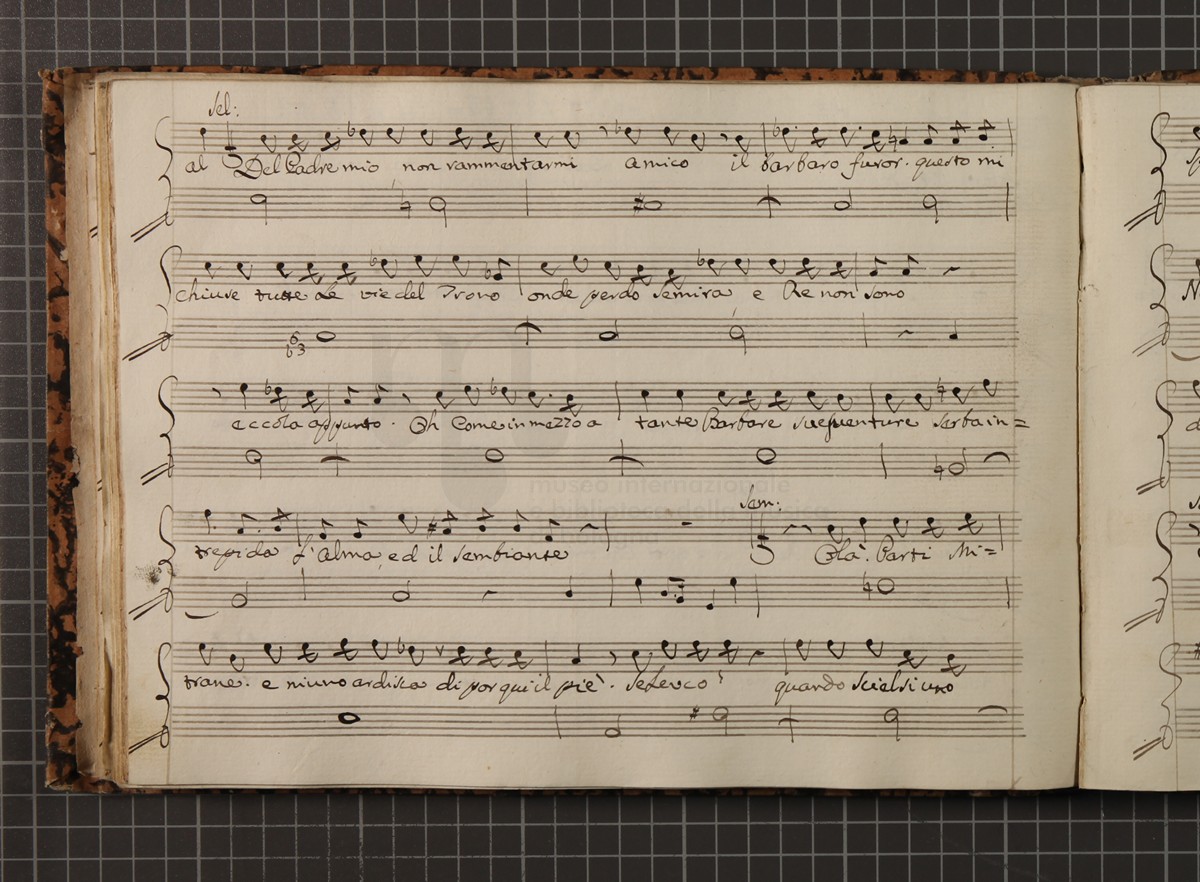 Sel:
al Del Padre mio non rammentarmi amico il barbaro furor. questo mi
chiuse tutte le vie del Trono onde perdo Semira e Re non sono
eccola appunto. Oh Come in mezzo a tante Barbare sue venture serba in=
Sem:
trepida l'Alma, ed il sembiante Olà. Parti Mi=
trane. e niuno ardisca di por qui il piè. Seleuco quando scielsi uno
museo internazionale
e biblioteca della musica
bologna